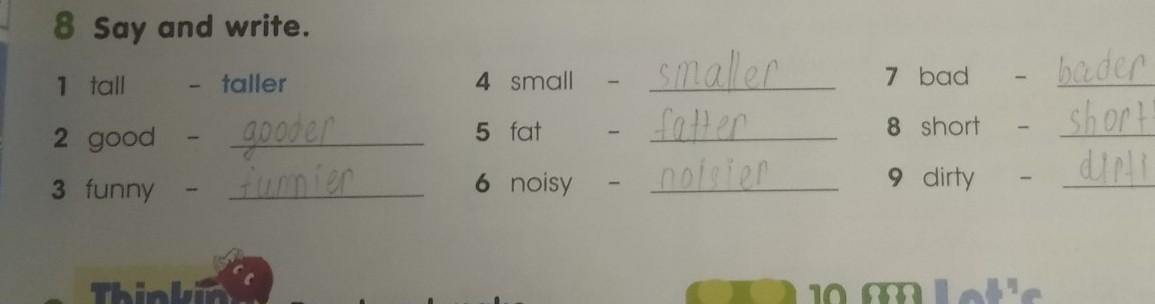 8 Say and write.
1 tall - taller
2 good - gooder
3 funny - funnier
4 small - smaller
5 fat - fatter
6 noisy - noisier
7 bad - bader
8 short - short
9 dirty - dirti
Thinkin
10 Let's